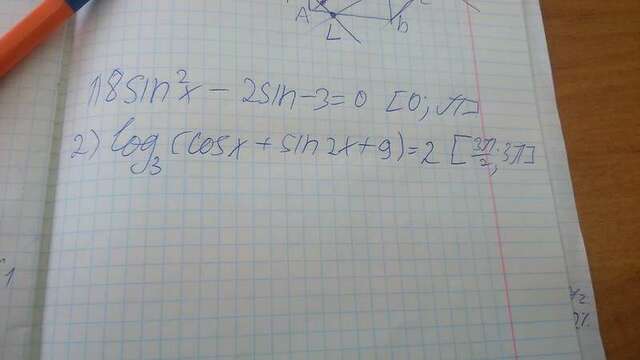 A
L
b
1) 8sin²x - 2sin-3=0 [0; π]
2) log₃(cosx + sin2x+9)=2 [3π/2; 3π]
1